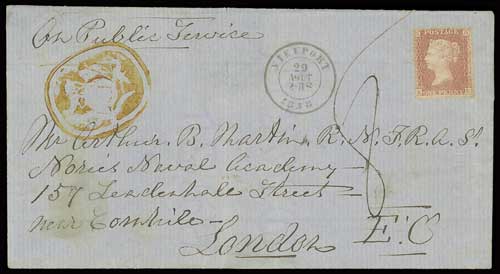 On Public Service
NIEUPORT
29
AOUT
1858
ONE PENNY
Mr Arthur B. Martin, R. N. F. R. A. S.
Nories Naval Academy
157 Leadenhall Street
near Cornhile
London E. C